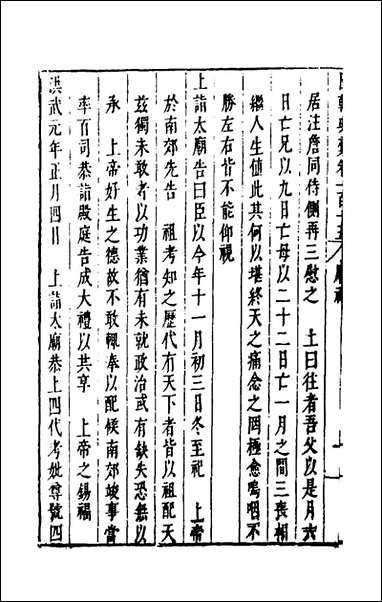 國朝典彙卷一百十五 廟祀
居注詹同侍側再三慰之 上曰往者吾父以是月六
日亡兄以九日亡母以二十二日亡一月之間三喪相
繼人生值此其何以堪終天之痛念之罔極愈嗚咽不
勝左右皆不能仰視
上詣太廟告曰臣以今年十一月初三日冬至祀 上帝
於南郊先告 祖考知之歷代有天下者皆以祖配天
茲獨未敢者以功業猶有未就政治或有缺失恐無以
承 上帝好生之德故不敢輒奉以配候南郊竣事當
率百司恭詣殿庭告成大禮以共享 上帝之錫福
洪武元年正月四日 上詣太廟恭上四代考妣尊號四